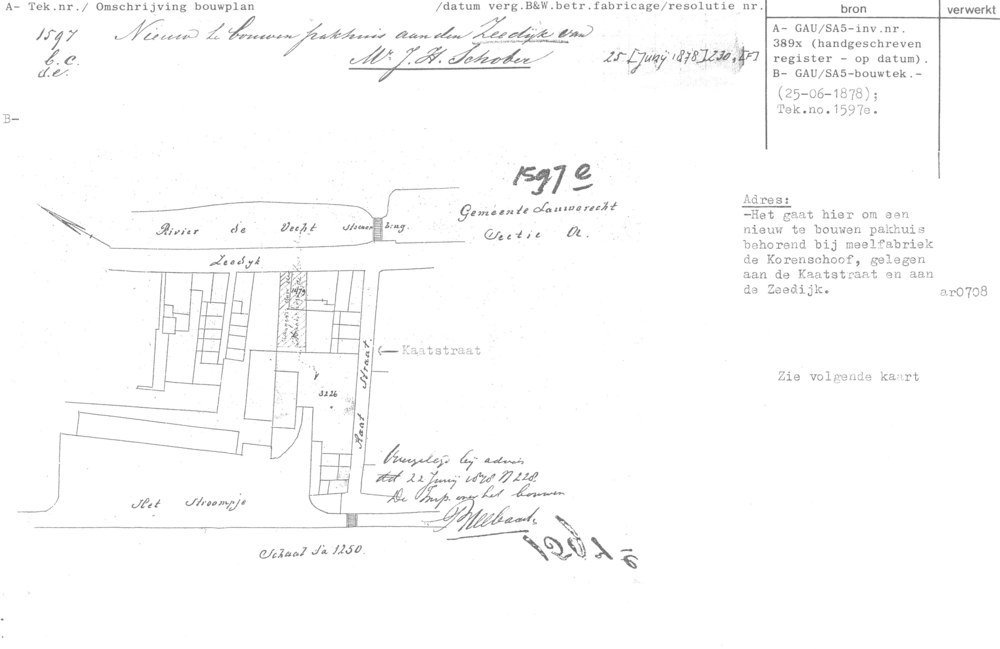 A- Tek.nr./ Omschrijving bouwplan /datum verg.B&W.betr.fabricage/resolutie nr.
bron
verwerkt
1597 Nieuw te bouwen pakhuis aan den Zeedijk van
b.c. Mr. J. H. Schober 25 [Junij 1878] 230.[F]
d.e.
A- GAU/SA5-inv.nr.
389x (handgeschreven
register - op datum).
B- GAU/SA5-bouwtek.-
(25-06-1878);
Tek.no.1597e.
B-
1597 e
Gemeente Lauwerecht
Sectie A.
Rivier de Vecht
Steenen brug.
Zeedyk
1479
Kaatstraat
Kaat Straat.
3226
Adres:
-Het gaat hier om een
nieuw te bouwen pakhuis
behorend bij meelfabriek
de Korenschoof, gelegen
aan de Kaatstraat en aan
de Zeedijk.
ar0708
Zie volgende kaart
Overgelegd bij advies
dd 22 Junij 1878 N 228.
De Insp. over het bouwen
Het Stroompje
Schaal 1 à 1250.
1597 e